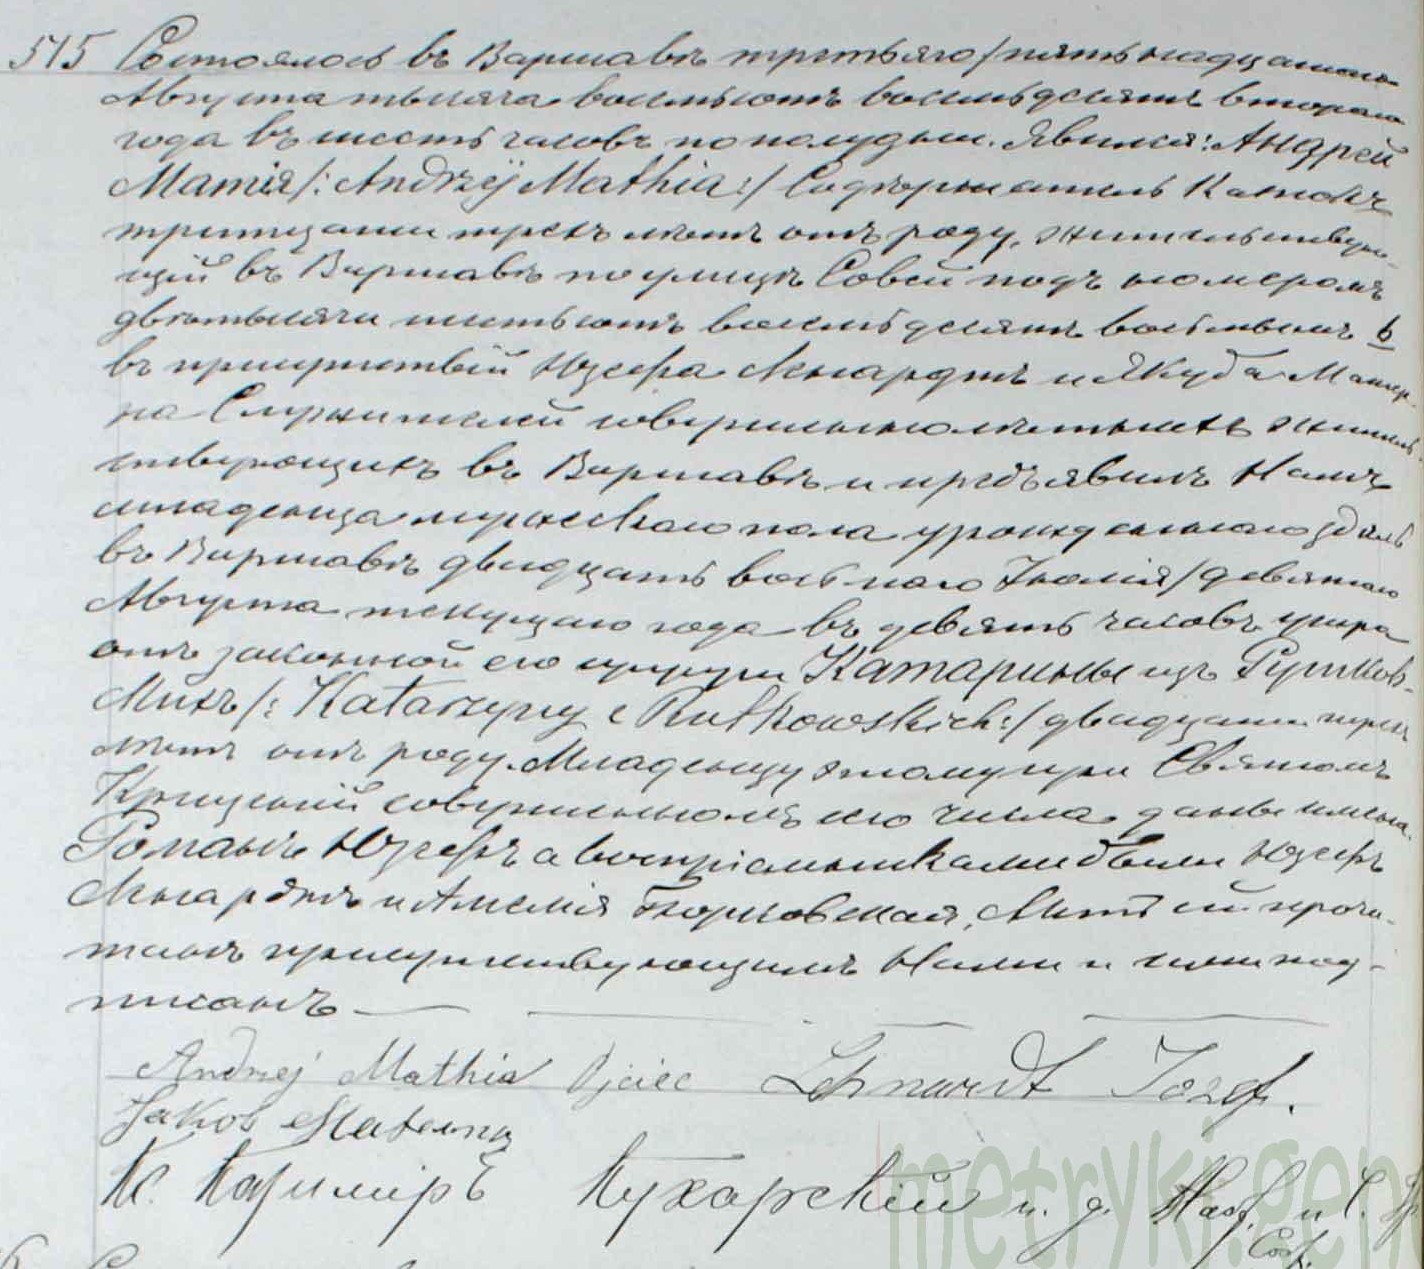 515 Состоялось въ Варшавѣ третьяго/пятьнадцатаго
Августа тысяча восемьсотъ восемьдесятъ втораго
года въ шесть часовъ по полудни. Явился: Андрей
Матія/: Andrzéj Mathia:/ Содержатель
тридцати трехъ лѣтъ отъ роду, жительствую-
щій въ Варшавѣ по улицѣ Совей подъ номеромъ
двѣ тысячи шестьсотъ восемьдесятъ восьмымъ b
въ присутствіи Юзефа Ленардтъ и Якуба Матер-
на Служителей совершеннолѣтнихъ житель-
ствующихъ въ Варшавѣ и предъявилъ Намъ
младенца мужескаго пола урожденнаго здѣсь
въ Варшавѣ двадцать восьмаго Іюля/девятаго
Августа текущаго года въ девять часовъ утра
отъ законной его супруги Катарины изъ Рутков-
скихъ/: Katarzyny z Rutkowskich:/ двадцати трехъ
лѣтъ отъ роду. Младенцу этому при Святомъ
Крещеніи совершенномъ сего числа даны имена
Романъ Юзефъ а воспріемниками были Юзефъ
Ленардтъ и Амелія Борковская, Актъ сей прочи-
танъ присутствующимъ Нами и ими под-
писанъ
Andrzej Mathia Ojciec Lehnardt Jozef.
Jakob Materna
К. Казиміръ Кухарскій и. д. Наст. и С.
metryki.gen